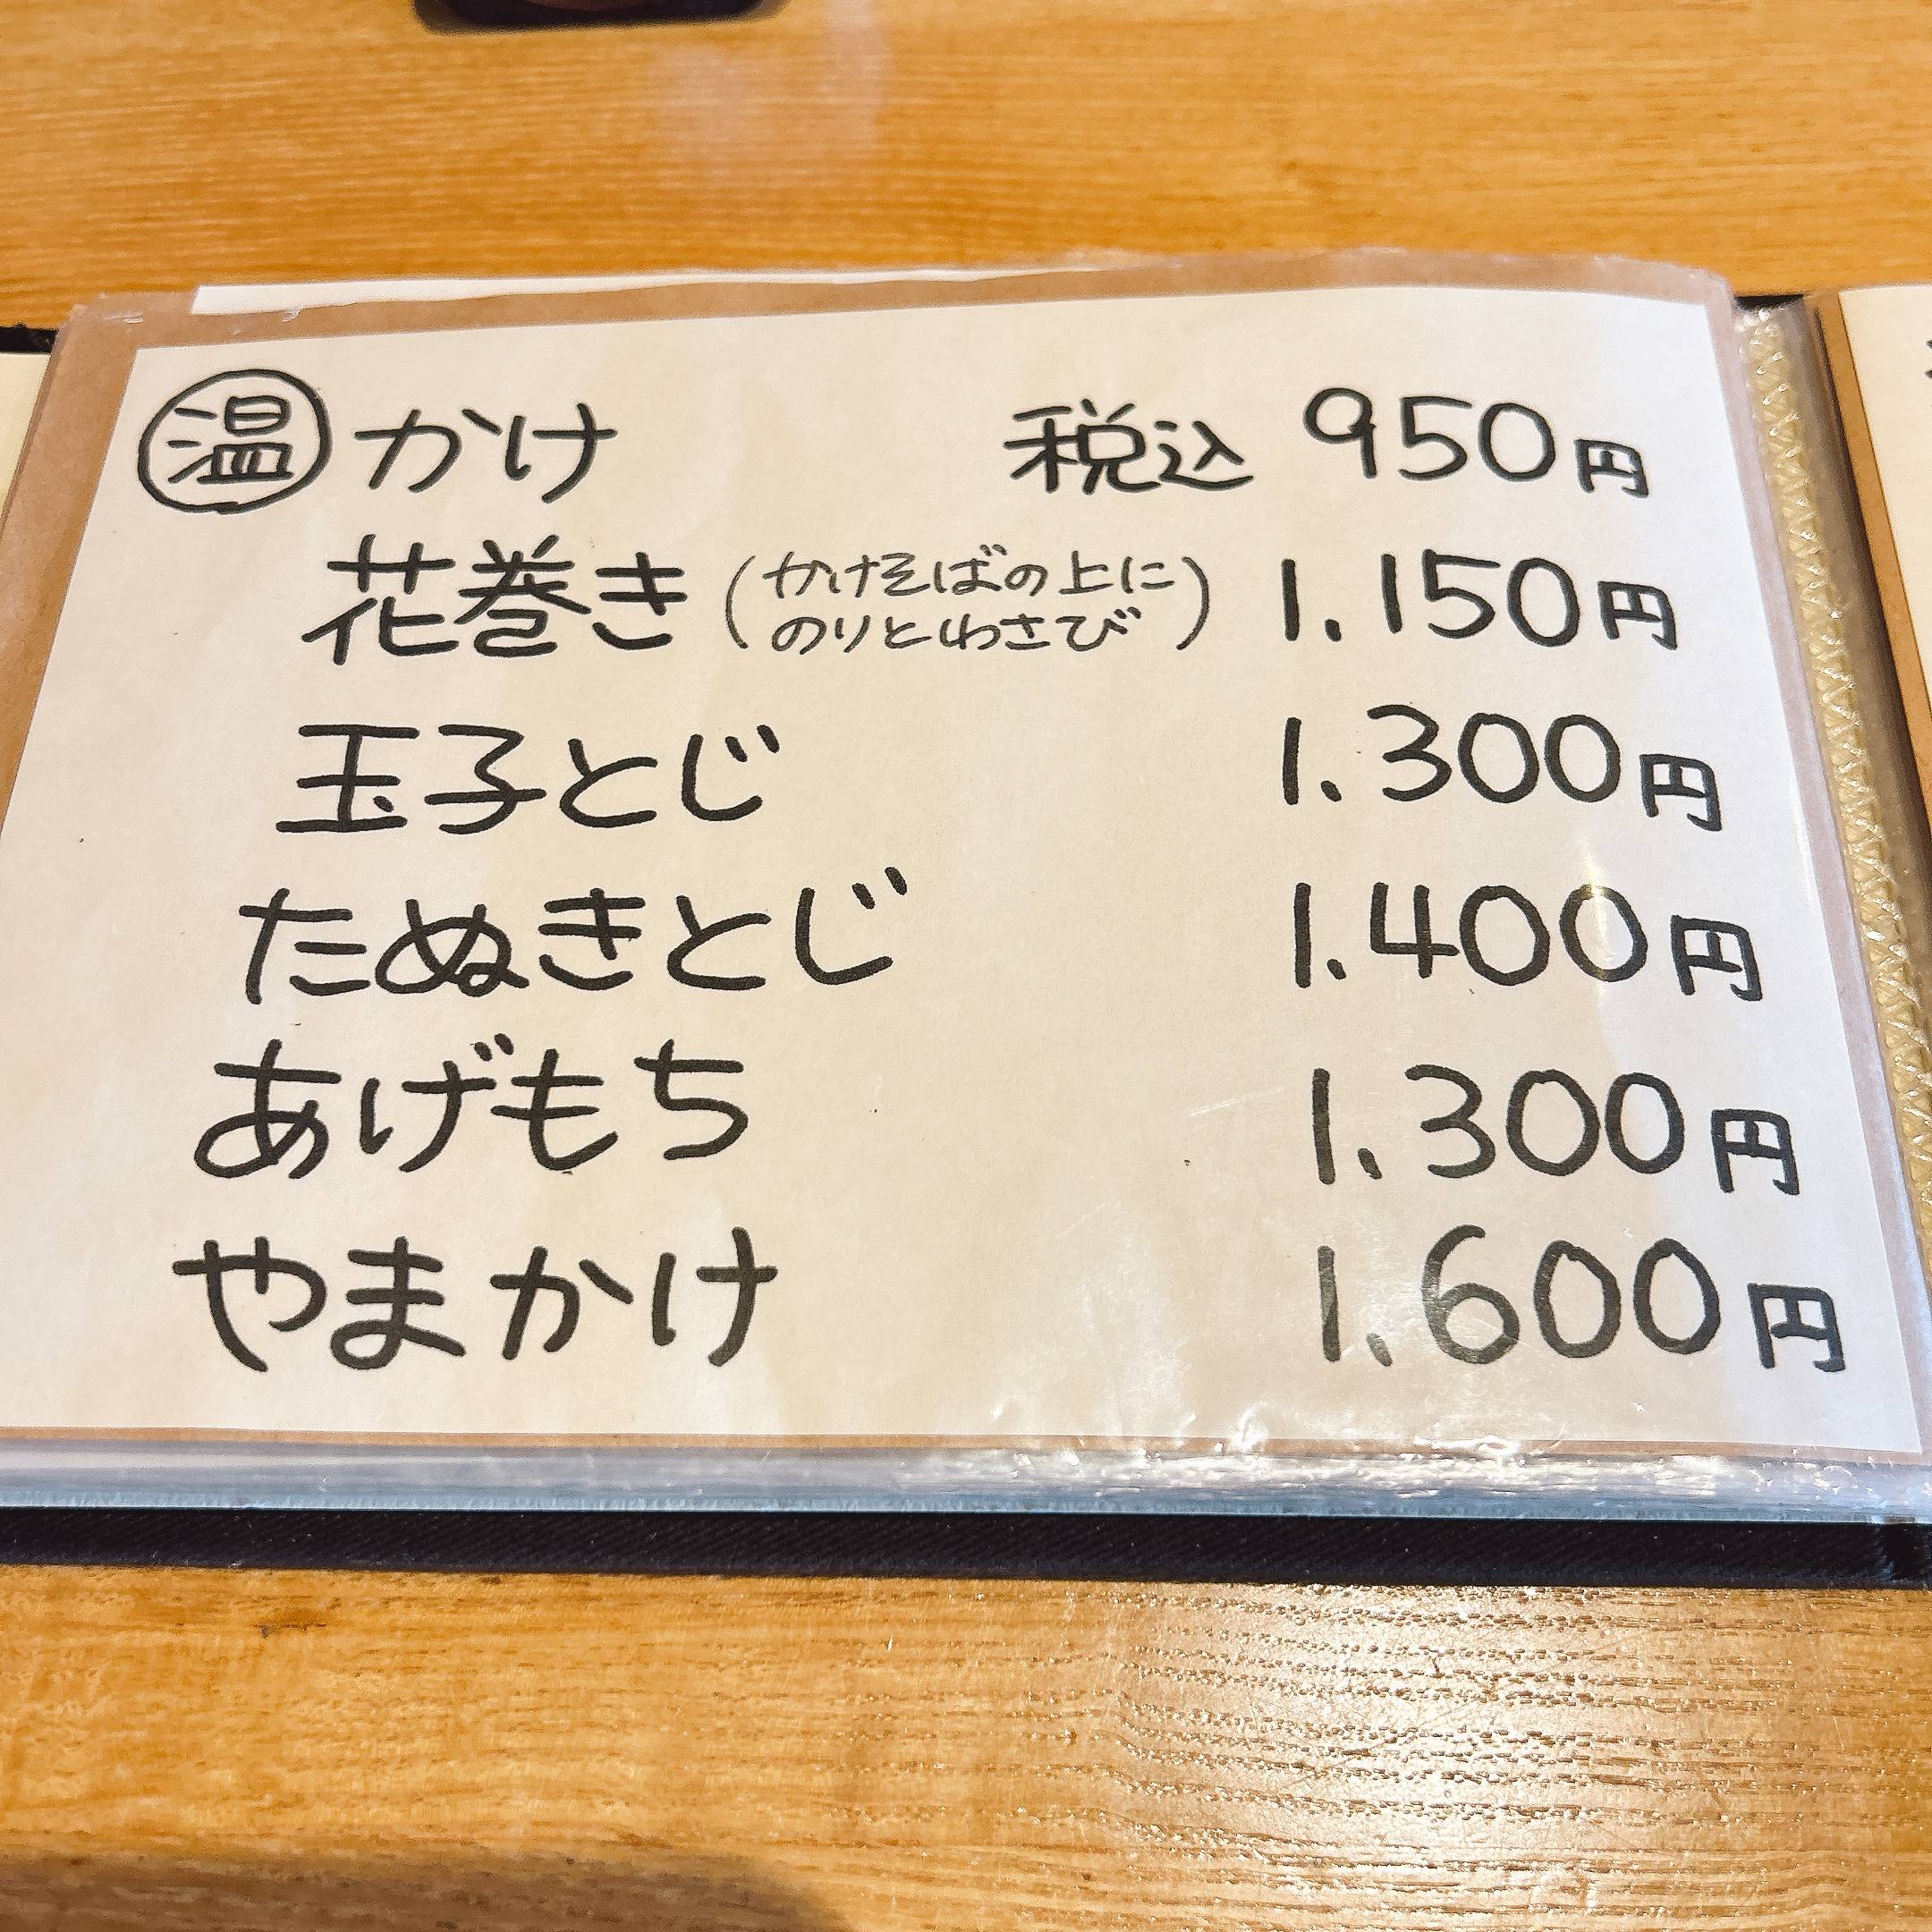 温 かけ 税込 950円
花巻き (かけそばの上に
のりとわさび) 1.150円
玉子とじ 1.300円
たぬきとじ 1.400円
あげもち 1.300円
やまかけ 1.600円